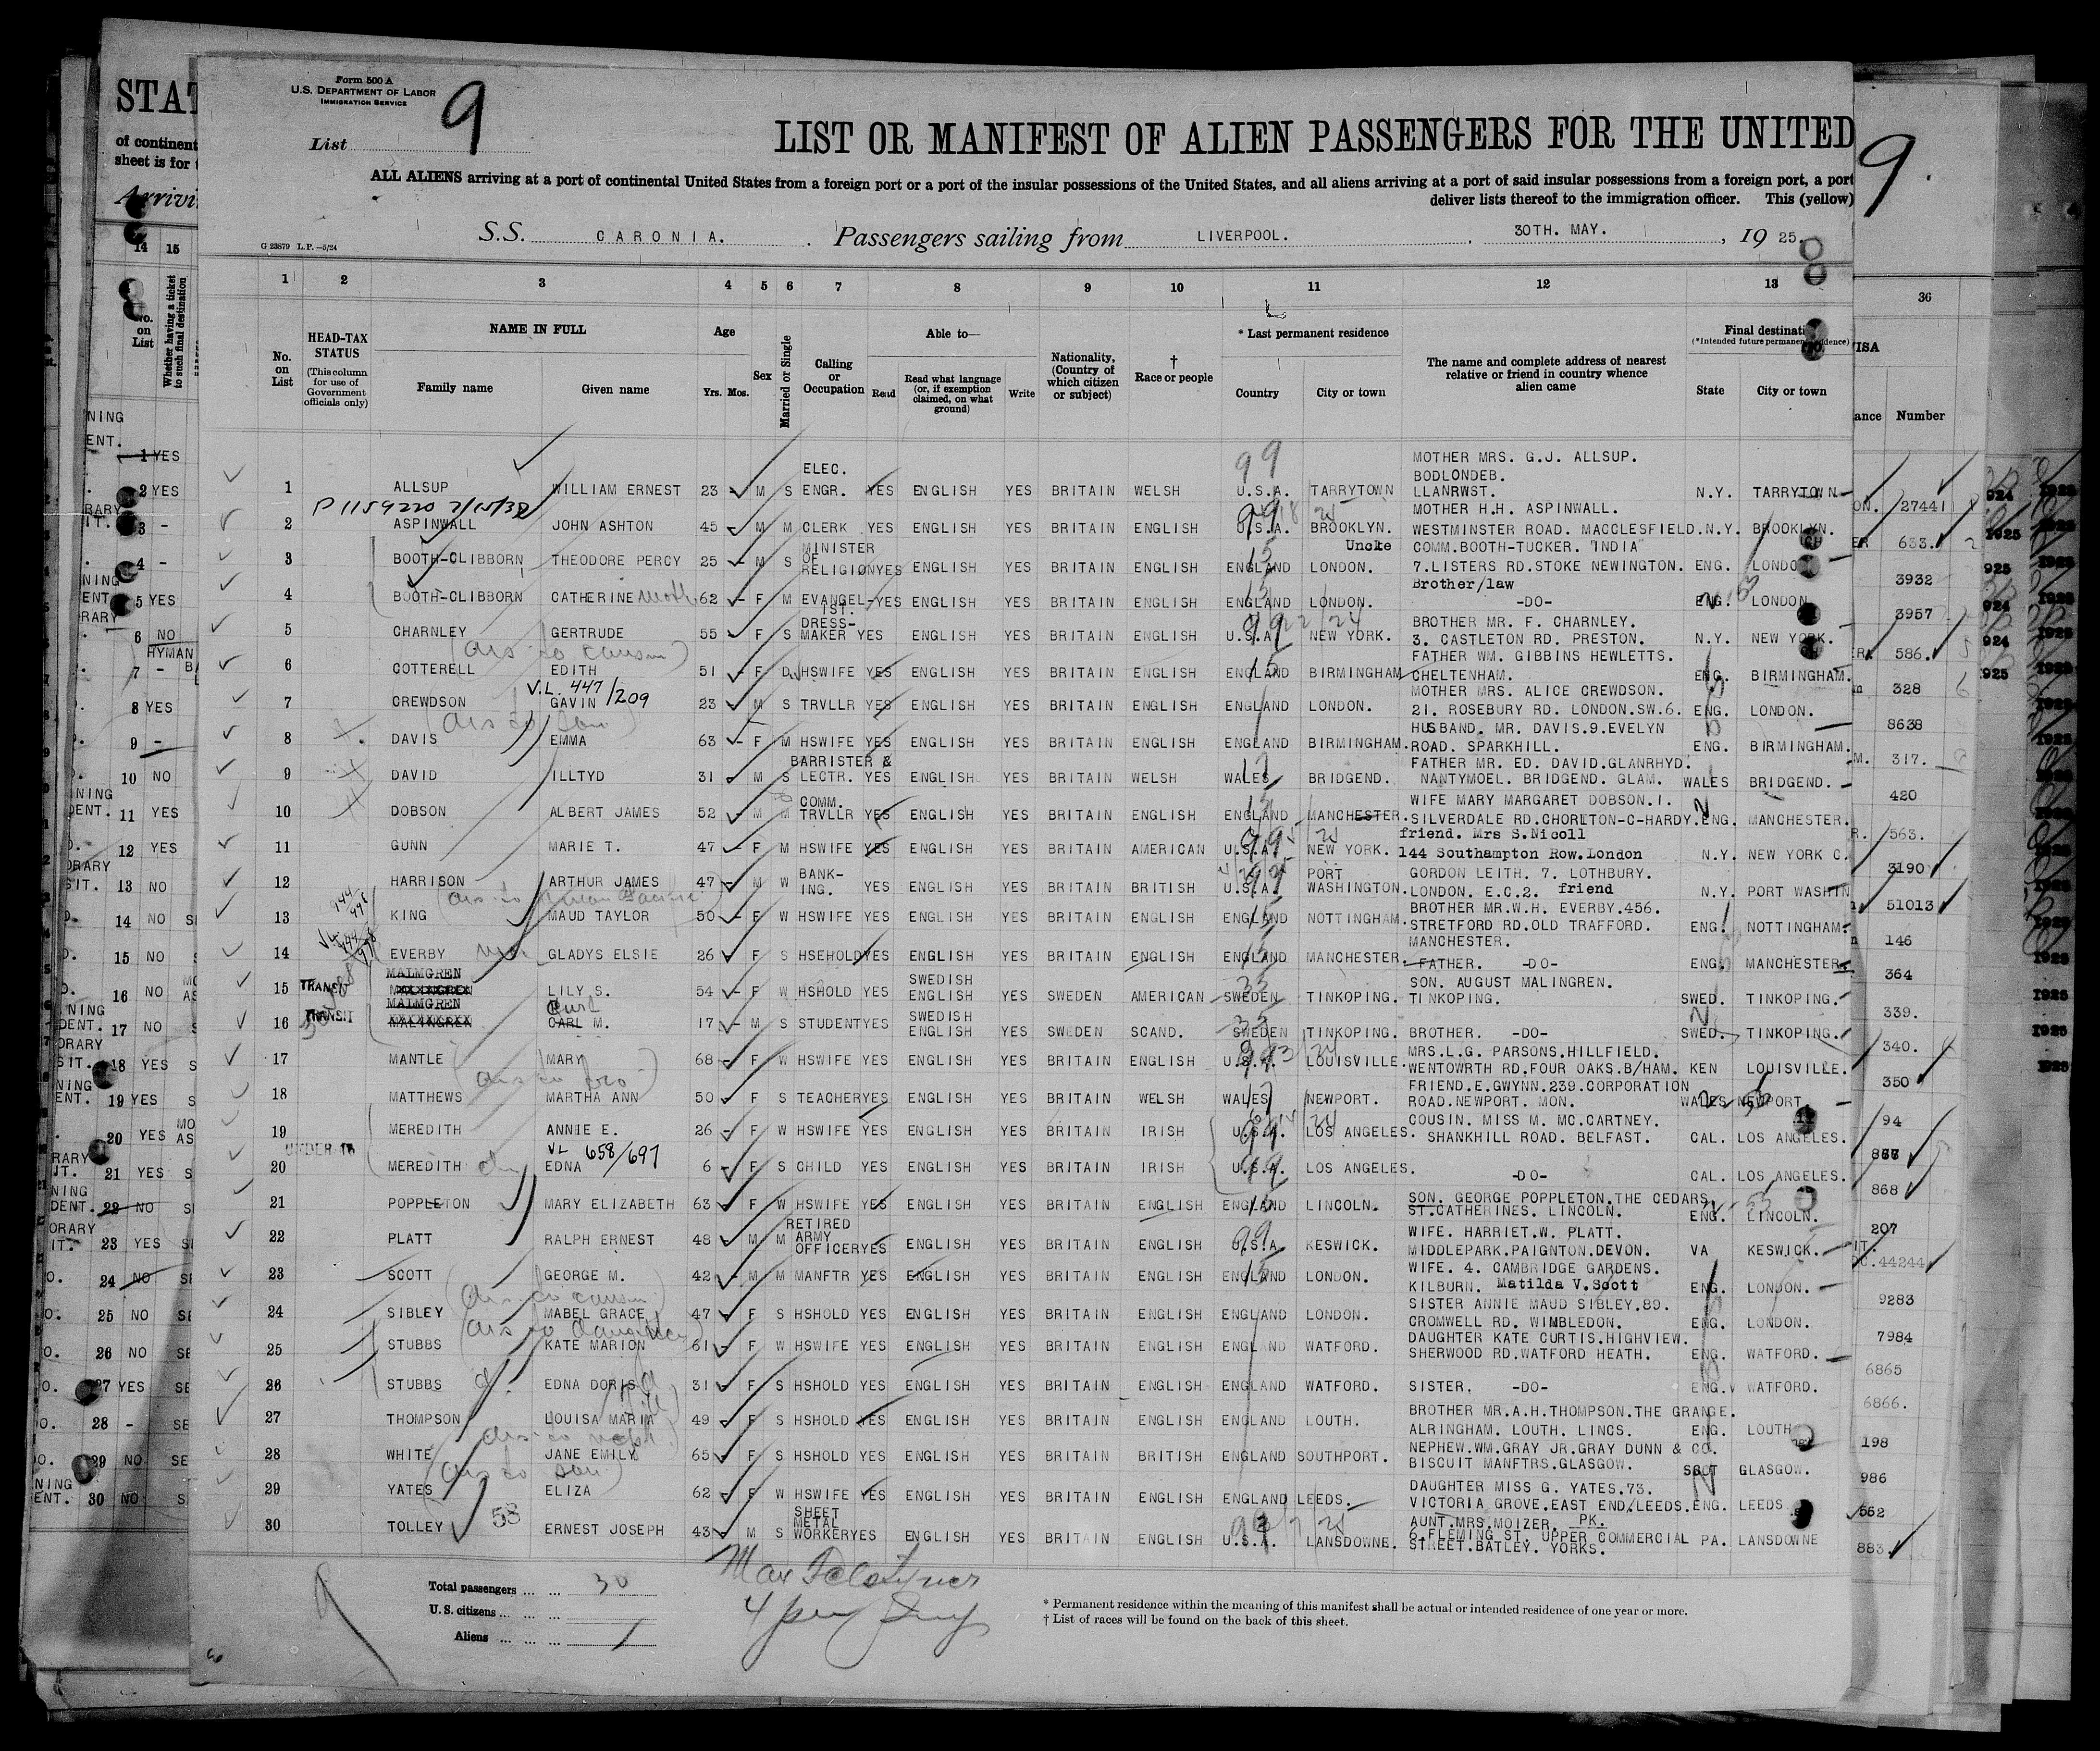 Form 500 A
U.S. DEPARTMENT OF LABOR
IMMIGRATION SERVICE
List 9
LIST OR MANIFEST OF ALIEN PASSENGERS FOR THE UNITED
ALL ALIENS arriving at a port of continental United States from a foreign port or a port of the insular possessions of the United States, and all aliens arriving at a port of said insular possessions from a foreign port, a port
deliver lists thereof to the immigration officer. This (yellow)
S.S. CARONIA. Passengers sailing from LIVERPOOL. 30TH. MAY. , 19 25.
G 23879 L.P.—5/24
1 2 3 4 5 6 7 8 9 10 11 12 13
No. on List
HEAD-TAX STATUS (This column for use of Government officials only)
NAME IN FULL
Family name Given name
Age Yrs. Mos.
Sex
Married or Single
Calling or Occupation
Able to—
Read Read what language (or, if exemption claimed, on what ground) Write
Nationality, (Country of which citizen or subject)
† Race or people
* Last permanent residence
Country City or town
The name and complete address of nearest relative or friend in country whence alien came
Final destinati
(*Intended future permanent residence)
State City or town
1 ALLSUP WILLIAM ERNEST 23 M S ELEC. ENGR. YES ENGLISH YES BRITAIN WELSH U.S.A. TARRYTOWN MOTHER MRS. G.J. ALLSUP. BODLONDEB. LLANRWST. N.Y. TARRYTOWN
P1159220 7/15/32
2 ASPINWALL JOHN ASHTON 45 M M CLERK YES ENGLISH YES BRITAIN ENGLISH U.S.A. BROOKLYN. MOTHER H.H. ASPINWALL. WESTMINSTER ROAD. MACCLESFIELD. N.Y. BROOKLYN.
3 BOOTH-CLIBBORN THEODORE PERCY 25 M S MINISTER OF RELIGION YES ENGLISH YES BRITAIN ENGLISH ENGLAND LONDON. Uncle COMM.BOOTH-TUCKER. "INDIA" 7.LISTERS RD.STOKE NEWINGTON. ENG. LONDON
4 BOOTH-CLIBBORN CATHERINE moth. 62 F M EVANGEL-IST. YES ENGLISH YES BRITAIN ENGLISH ENGLAND LONDON. Brother/law -DO- ENG. LONDON
5 CHARNLEY GERTRUDE 55 F S DRESS-MAKER YES ENGLISH YES BRITAIN ENGLISH U.S.A. NEW YORK. BROTHER MR. F. CHARNLEY. 3. CASTLETON RD. PRESTON. N.Y. NEW YORK.
6 COTTERELL EDITH 51 F D HSWIFE YES ENGLISH YES BRITAIN ENGLISH ENGLAND BIRMINGHAM FATHER WM. GIBBINS HEWLETTS. CHELTENHAM. ENG. BIRMINGHAM.
V.L. 447/209
7 CREWDSON GAVIN 23 M S TRVLLR YES ENGLISH YES BRITAIN ENGLISH ENGLAND LONDON. MOTHER MRS. ALICE CREWDSON. 21. ROSEBURY RD. LONDON.SW.6. ENG. LONDON.
8 DAVIS EMMA 63 F M HSWIFE YES ENGLISH YES BRITAIN ENGLISH ENGLAND BIRMINGHAM. HUSBAND. MR. DAVIS.9.EVELYN ROAD. SPARKHILL. ENG. BIRMINGHAM.
9 DAVID ILLTYD 31 M S BARRISTER & LECTR. YES ENGLISH YES BRITAIN WELSH WALES BRIDGEND. FATHER MR. ED. DAVID.GLANRHYD. NANTYMOEL. BRIDGEND. GLAM. WALES BRIDGEND.
10 DOBSON ALBERT JAMES 52 M M COMM. TRVLLR YES ENGLISH YES BRITAIN ENGLISH ENGLAND MANCHESTER. WIFE MARY MARGARET DOBSON.1. SILVERDALE RD.CHORLTON-C-HARDY. ENG. MANCHESTER.
11 GUNN MARIE T. 47 F M HSWIFE YES ENGLISH YES BRITAIN AMERICAN U.S.A. NEW YORK. friend. Mrs S.Nicoll 144 Southampton Row.London N.Y. NEW YORK C.
12 HARRISON ARTHUR JAMES 47 M W BANK-ING. YES ENGLISH YES BRITAIN BRITISH U.S.A. PORT WASHINGTON. GORDON LEITH. 7. LOTHBURY. LONDON. E.C.2. friend N.Y. PORT WASHIN
13 KING MAUD TAYLOR 50 F W HSWIFE YES ENGLISH YES BRITAIN ENGLISH ENGLAND NOTTINGHAM. BROTHER MR.W.H. EVERBY.456. STRETFORD RD.OLD TRAFFORD. MANCHESTER. ENG. NOTTINGHAM.
14 EVERBY GLADYS ELSIE 26 F S HSEHOLD YES ENGLISH YES BRITAIN ENGLISH ENGLAND MANCHESTER. FATHER. -DO- ENG. MANCHESTER
15 TRANSIT MALMGREN LILY S. 54 F W HSHOLD YES SWEDISH ENGLISH YES SWEDEN AMERICAN SWEDEN TINKOPING. SON. AUGUST MALINGREN. TINKOPING. SWED. TINKOPING.
16 TRANSIT MALMGREN MALINGREN Curt CARL M. 17 M S STUDENT YES SWEDISH ENGLISH YES SWEDEN SCAND. SWEDEN TINKOPING. BROTHER. -DO- SWED. TINKOPING.
17 MANTLE MARY 68 F W HSWIFE YES ENGLISH YES BRITAIN ENGLISH U.S.A. LOUISVILLE. MRS.L.G. PARSONS.HILLFIELD. WENTOWRTH RD.FOUR OAKS.B/HAM. KEN LOUISVILLE.
18 MATTHEWS MARTHA ANN 50 F S TEACHER YES ENGLISH YES BRITAIN WELSH WALES NEWPORT. FRIEND.E.GWYNN.239.CORPORATION ROAD.NEWPORT. MON. WALES NEWPORT.
19 MEREDITH ANNIE E. 26 F W HSWIFE YES ENGLISH YES BRITAIN IRISH U.S.A. LOS ANGELES. COUSIN. MISS M. MC.CARTNEY. SHANKHILL ROAD. BELFAST. CAL. LOS ANGELES.
UNDER 16 VL 658/697
20 MEREDITH EDNA 6 F S CHILD YES ENGLISH YES BRITAIN IRISH U.S.A. LOS ANGELES. -DO- CAL. LOS ANGELES.
21 POPPLETON MARY ELIZABETH 63 F W HSWIFE YES ENGLISH YES BRITAIN ENGLISH ENGLAND LINCOLN. SON. GEORGE POPPLETON.THE CEDARS ST.CATHERINES. LINCOLN. ENG. LINCOLN.
22 PLATT RALPH ERNEST 48 M M RETIRED ARMY OFFICER YES ENGLISH YES BRITAIN ENGLISH U.S.A. KESWICK. WIFE. HARRIET.W. PLATT. MIDDLEPARK.PAIGNTON.DEVON. VA KESWICK.
23 SCOTT GEORGE M. 42 M M MANFTR YES ENGLISH YES BRITAIN ENGLISH ENGLAND LONDON. WIFE. 4. CAMBRIDGE GARDENS. KILBURN. Matilda V.Scott ENG. LONDON.
24 SIBLEY MABEL GRACE 47 F S HSHOLD YES ENGLISH YES BRITAIN ENGLISH ENGLAND LONDON. SISTER ANNIE MAUD SIBLEY.89. CROMWELL RD. WIMBLEDON. ENG. LONDON.
25 STUBBS KATE MARION 61 F W HSWIFE YES ENGLISH YES BRITAIN ENGLISH ENGLAND WATFORD. DAUGHTER KATE CURTIS.HIGHVIEW. SHERWOOD RD.WATFORD HEATH. ENG. WATFORD.
26 STUBBS EDNA DORIS 31 F S HSHOLD YES ENGLISH YES BRITAIN ENGLISH ENGLAND WATFORD. SISTER. -DO- ENG. WATFORD.
27 THOMPSON LOUISA MARIA 49 F S HSHOLD YES ENGLISH YES BRITAIN ENGLISH ENGLAND LOUTH. BROTHER MR.A.H.THOMPSON.THE GRANGE. ALRINGHAM. LOUTH. LINCS. ENG. LOUTH
28 WHITE JANE EMILY 65 F S HSHOLD YES ENGLISH YES BRITAIN BRITISH ENGLAND SOUTHPORT. NEPHEW.WM.GRAY JR.GRAY DUNN & CO. BISCUIT MANFTRS.GLASGOW. SCOT GLASGOW.
29 YATES ELIZA 62 F W HSWIFE YES ENGLISH YES BRITAIN ENGLISH ENGLAND LEEDS. DAUGHTER MISS G. YATES.73. VICTORIA GROVE.EAST END/LEEDS. ENG. LEEDS
30 TOLLEY 53 ERNEST JOSEPH 43 M S SHEET METAL WORKER YES ENGLISH YES BRITAIN ENGLISH U.S.A. LANSDOWNE. AUNT.MRS.MOIZER. PK. 6.FLEMING ST. UPPER COMMERCIAL STREET.BATLEY. YORKS. PA. LANSDOWNE
Total passengers ... ... 30
U.S. citizens ... ... ...
Aliens ... ... ...
* Permanent residence within the meaning of this manifest shall be actual or intended residence of one year or more.
† List of races will be found on the back of this sheet.
9
36
VISA
ance Number
27441
633.
3932
3957
586.
328
8638
317.
420
563.
3190
51013
146
364
339.
340.
350
94
868
207
44244
9283
7984
6865
6866.
198
986
562
883.
STAT
of continent
sheet is for
Arrivi
14 15
No. on List
Whether having a ticket to such final destination
1 YES
2 YES
3 -
4 -
5 YES
6 NO
HYMAN
7 -
8 YES
9 -
10 NO
11 YES
12 YES
13 NO
14 NO
15 NO
16 NO
17 NO
18 YES
19 YES
20 YES
21 YES
22 NO
23 YES
24 NO
25 NO
26 NO
27 YES
28 -
29 NO
30 NO